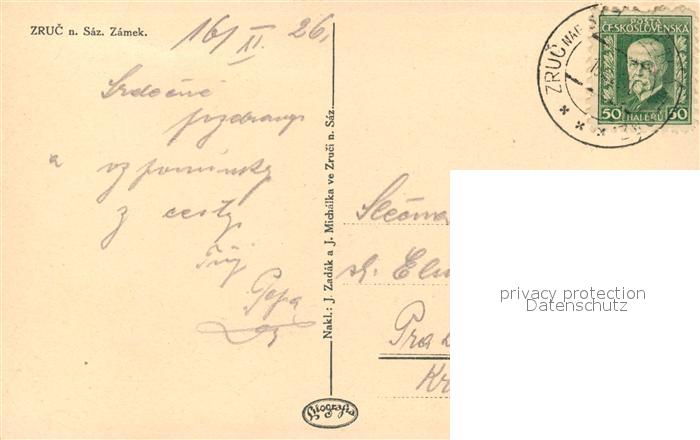 ZRUČ n. Sáz. Zámek.
16/II. 26.
Srdečné
pozdravy
a vzpomínky
z cesty
Tvůj
Pepa
Nakl.: J. Zadák a J. Michálka ve Zruči n. Sáz.
Geografia
ZRUČ NAD S
POŠTA
ČESKOSLOVENSKA
50 HALÉŘŮ 50
Slečna
sl.
Pra
Kr
privacy protection
Datenschutz